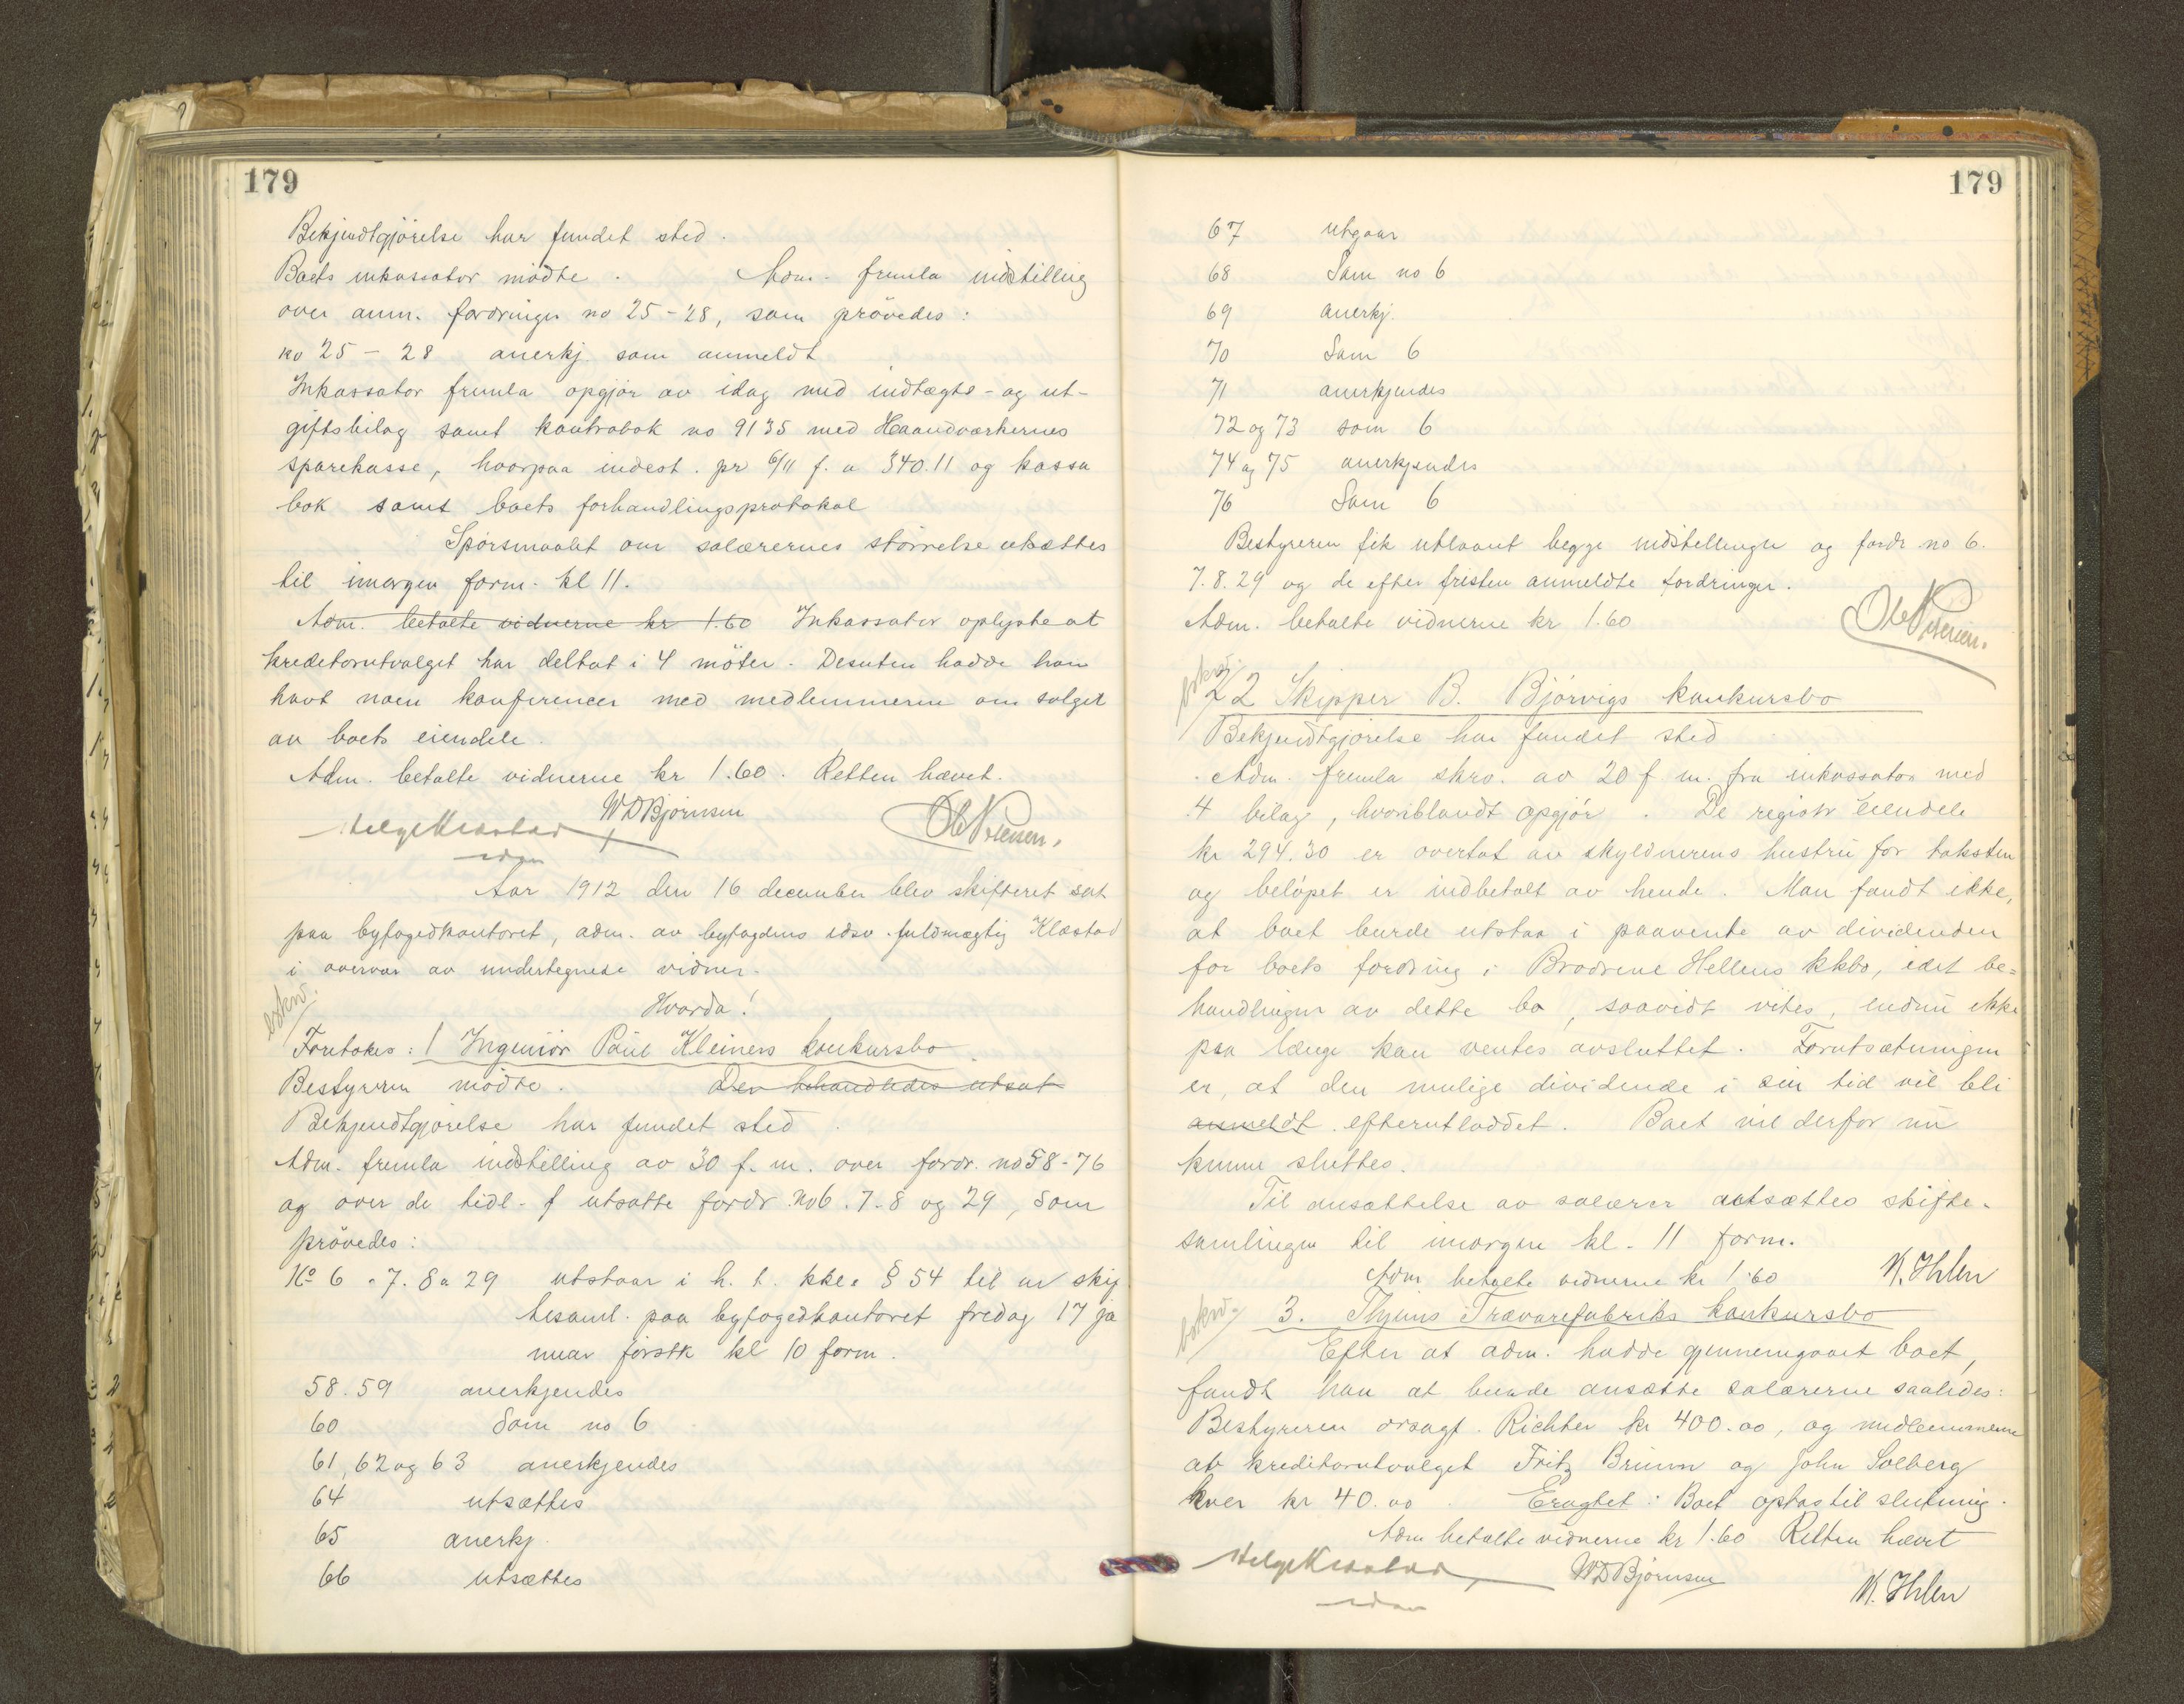 179
Bekjendtgjörelse har fundet sted.
Boets inkassator mödte. Adm. fremla indstilling
over anm. fordringer no 25-28, som prövedes:
no 25 - 28 anerkj. som anmeldt
Inkassator fremla opgjör av idag med indtægts- og ut-
giftsbilag samt kontrabok no 9135 med Haandværkernes
sparekasse, hvorpaa indest. pr 6/11 f. a 340.11 og kassa
bok samt boets forhandlingsprotokol
Spörsmaalet om salærernes störrelse utsættes
til imorgen form. kl 11.
Adm. betalte vidnerne kr 1.60 Inkassator oplyste at
kreditorutvalget har deltat i 4 möter. Desuten hadde han
havt noen konferencer med medlemmerne om salget
av boets eiendele.
Adm. betalte vidnerne kr 1.60. Retten hævet.
Helge Klæstad WDBjörnsen
edsv
Aar 1912 den 16 december blev skifteret sat
paa byfogedkontoret, adm. av byfogdens edsv. fuldmægtig Klæstad
i overvær av undertegnede vidner.
Hvorda!
Foretokes: 1 Ingeniör Paul Kleiners konkursbo
Bestyreren mödte. Den behandledes utsat
Bekjendtgjörelse har fundet sted.
Adm. fremla indstilling av 30 f. m. over fordr. no 58-76
og over de tidl. f utsatte fordr. no 6. 7. 8 og 29, som
prövedes:
No 6. 7. 8 a 29 utstaar i h. t. kkl. § 54 til ny skif
tesaml. paa byfogedkontoret fredag 17 ja
nuar förstk kl 10 form.
58. 59 anerkjendes
60 Som no 6
61, 62 og 63 anerkjendes
64 utsættes
65 anerkj.
66 utsættes
179
67 utgaar
68 Som no 6
69 anerkj.
70 Som 6
71 anerkjendes
72 og 73 som 6
74 og 75 anerkjendes
76 Som 6
Bestyreren fik utlaant begge indstillinger og fordr no 6.
7. 8. 29 og de efter fristen anmeldte fordringer.
Adm. betalte vidnerne kr 1.60
2 Skipper B. Björvigs konkursbo
Bekjendtgjörelse har fundet sted
Adm. fremla skrv. av 20 f. m. fra inkassator med
4 bilag, hvoriblandt opgjör. De registr eiendele
kr 294.30 er overtat av skyldnerens hustru for taksten
og belöpet er indbetalt av hende. Man fandt ikke,
at boet burde utstaa i paavente av dividenden
for boets fordring i Brödrene Hellens kkbo, idet be=
handlingen av dette bo, saavidt vites, endnu ikke
paa længe kan ventes avsluttet. Forutsætningen
er, at den mulige dividende i sin tid vil bli
anmeldt efterutloddet. Boet vil derfor nu
kunne sluttes.
Til ansættelse av salærer utsættes skifte-
samlingen til imorgen kl. 11 form.
Adm betalte vidnerne kr 1.60 K. Ihlen
3. Thjems Trævarefabriks konkursbo
Efter at adm. hadde gjennemgaaet boet,
fandt han at burde ansætte salærerne saaledes:
Bestyreren orsagf. Richter kr 400.00, og medlemmerne
av kreditorutvalget Fritz Bruun og John Solberg
hver kr 40.00. Eragtet: Boet optas til slutning.
Adm betalte vidnerne kr 1.60 Retten hævet
Helge Klæstad WDBjörnsen
edsv K. Ihlen